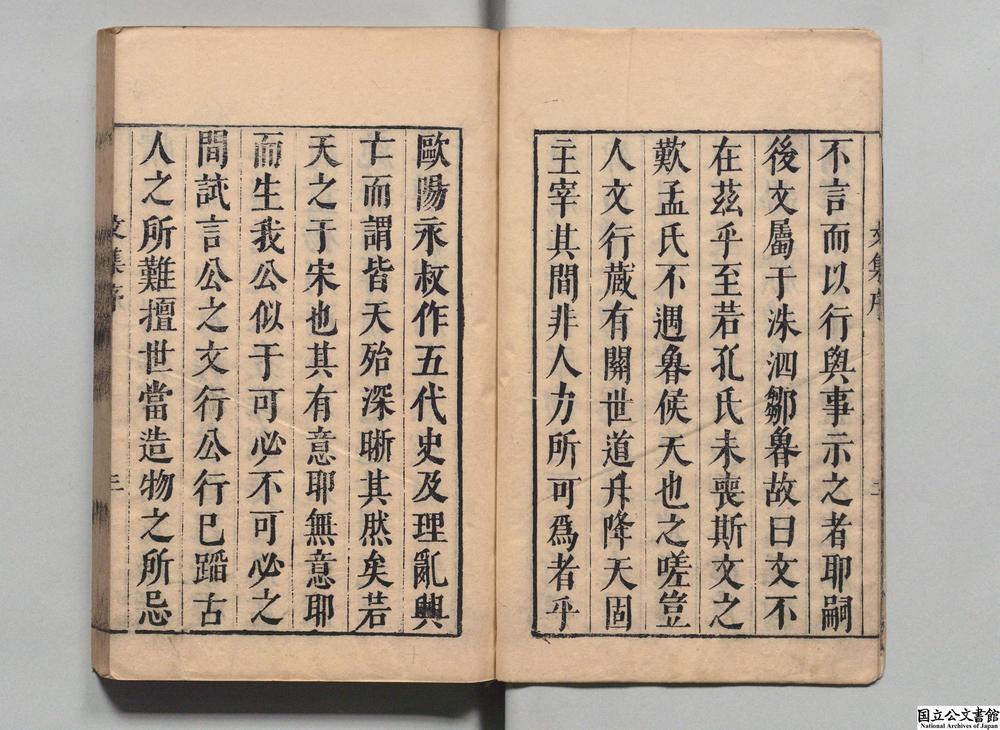 不言而以行與事示之者耶嗣
後文屬于洙泗鄒魯故曰文不
在茲乎至若孔氏未喪斯文之
歎孟氏不遇魯侯天也之嗟豈
人文行蕆有關世道升降天固
主宰其間非人力所可為者乎
歐陽永叔作五代史及理亂興
亡而謂皆天殆深晰其然矣若
天之于宋也其有意耶無意耶
而生我公似于可必不可必之
間試言公之文行公行已蹈古
人之所難擅世當造物之所忌
文集序
国立公文書館
National Archives of Japan